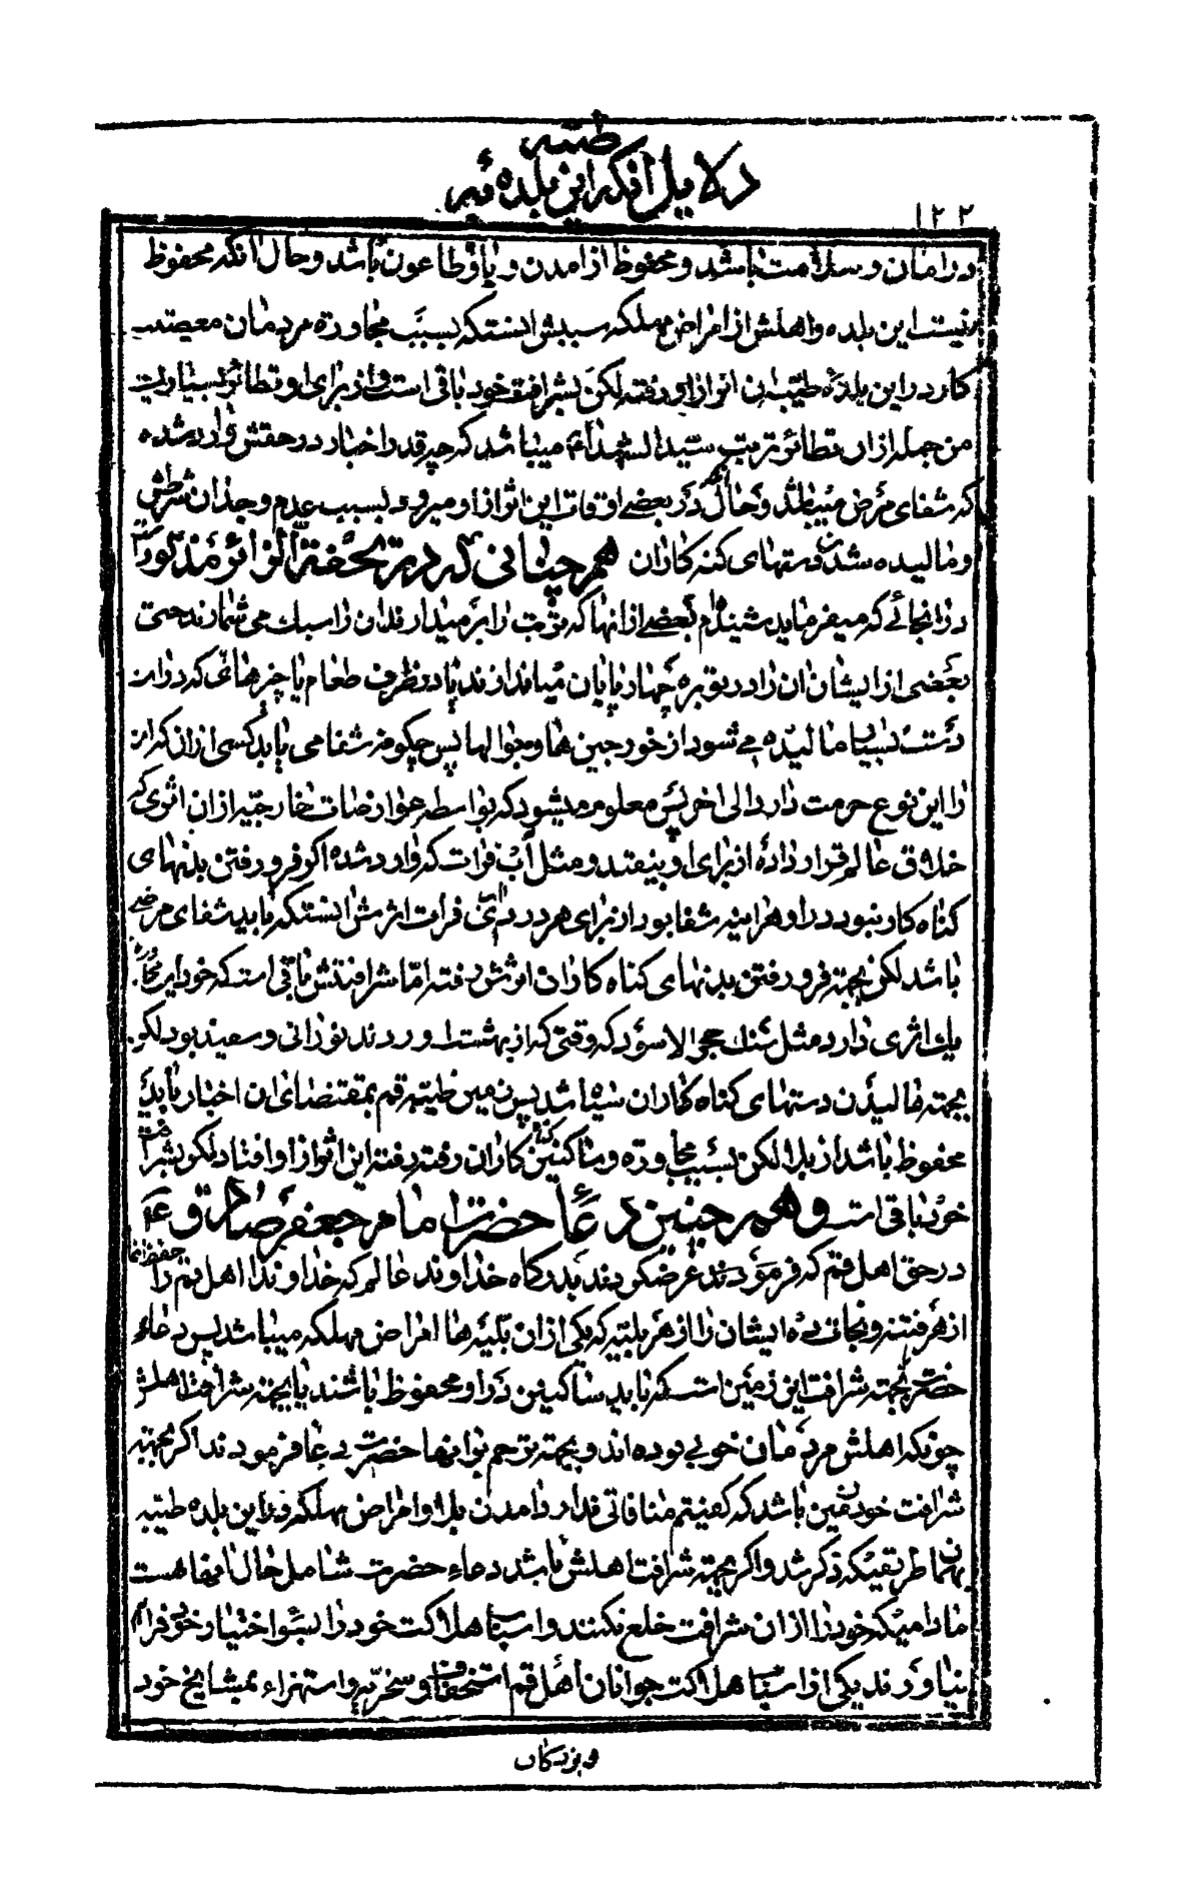 طیبه
دلایل انکه این بلده
۱۲۲
در امان و سلامت باشد و محفوظ از امدن وبا و طاعون باشد و حال انکه محفوظ
نیست این بلده و اهلش از امراض مهلکه سببش اینستکه بسبب مجاورة مردمان معصیت
کار در این بلده طیبه این اثر از او رفته لکن بشرافت خود باقی است و از برای او نظائر بسیاریست
من جمله از ان نظائر تربت سید الشهداء میباشد که چه قدر اخبار در حقش وارد شده
که شفای مرض میباشد و حال انکه در بعضی اوقات این اثر از او میرود بسبب عدم وجدان شرطش
و مالیده شدن دستهای کنه کاران همچنانی که در تحفة الزائر مذکور است
در انجائی که میفرماید شنیدم بعضی از انها که تربت را بر میدارند ان را سبک می شمارند حتی
بعضی از ایشان ان را در توبره چهار پایان میاندازند یا در ظرف طعام یا چیزهائی که در این
دست بسیار مالیده می شود از خورجین ها و جوالها پس چکونه شفا می یابد کسی از ان که ان
را این نوع حرمت دارد الی اخر پس معلوم میشود که بواسطه عوارضات خارجیه از ان اثری که
خلاق عالم قرار داده از برای او بیفتد و مثل آب فرات که وارد شده اکر فرو رفتن بدنهای
کناه کار نبود در او هراینه شفا بود از برای هر دردی یعنی فرات اثرش اینستکه باید شفای مرض
باشد لکن بجهة فرو رفتن بدنهای کناه کاران اثرش رفته اما شرافتش باقی است که خود این مجاورة
یک اثری دارد مثل سنک حجر الاسود که وقتی که از بهشت اوردند نورانی و سفید بود لکن
بجهة مالیدن دستهای کناه کاران سیاه شد پس زمین طیبه قم بمقتضای ان اخبار باید
محفوظ باشد از بلا لکن بسبب مجاورة و ساکنین کنه کاران رفته رفته این اثر از او افتاد لکن بشرافت
خود باقی است و همچنین دعا حضرت امام جعفر صادق ع
در حق اهل قم که فرمودند عرض کردند بدرکاه خداوند عالم که خداوندا اهل قم را حفظ نما
از هر فتنه و نجات ده ایشان را از هر بلیه که یکی از ان بلیه ها امراض مهلکه میباشد پس دعاء
حضرت بجهة شرافت این زمین است که باید ساکنین در او محفوظ باشند یا بجهة شرافت اهلش
چونکه اهلش مردمان خوبی بوده اند و بجهة ترحم بر اینها حضرت دعا فرمودند اکر بجهة
شرافت خود زمین باشد که کفتیم منافاتی ندارد امدن بلا و امراض مهلکه در این بلده طیبه
بهمان طریقیکه ذکر شد و اکر بجهة شرافت اهلش باشد دعاء حضرت شامل حال انها هست
مادامیکه خود را از ان شرافت خلع نکنند و اسباب هلاکت خود را بسوء اختیار خود فراهم
نیاورند یکی از اسباب هلاکت جوانان اهل قم استخفاف و سخریه و استهزاء بمشایخ خود
و بزرکان